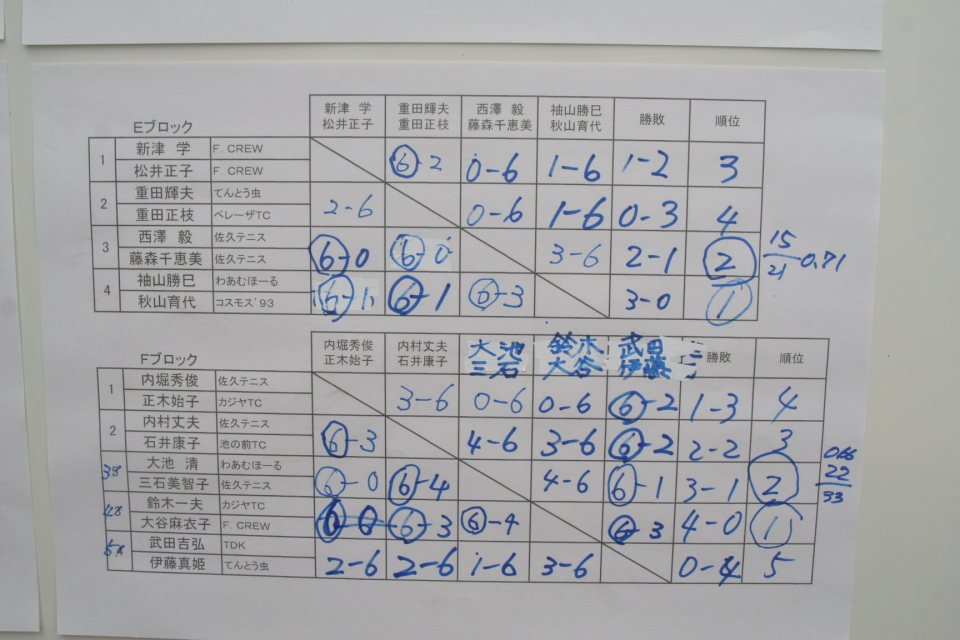 Eブロック
新津 学 重田輝夫 西澤 毅 袖山勝巳 勝敗 順位
松井正子 重田正枝 藤森千恵美 秋山育代
1 新津 学 F. CREW ⑥-2 0-6 1-6 1-2 3
松井正子 F. CREW
2 重田輝夫 てんとう虫 2-6 0-6 1-6 0-3 4
重田正枝 ベレーザTC
3 西澤 毅 佐久テニス ⑥-0 ⑥-0 3-6 2-1 ② 15/21 0.71
藤森千恵美 佐久テニス
4 袖山勝巳 わあむほーる ⑥-1 ⑥-1 ⑥-3 3-0 ①
秋山育代 コスモス'93
Fブロック
内堀秀俊 内村丈夫 大池 鈴木 武田 勝敗 順位
正木始子 石井康子 三石 大谷 伊藤
1 内堀秀俊 佐久テニス 3-6 0-6 0-6 ⑥-2 1-3 4
正木始子 カジヤTC
2 内村丈夫 佐久テニス ⑥-3 4-6 3-6 ⑥-2 2-2 3
石井康子 池の前TC
3 大池 清 わあむほーる ⑥-0 ⑥-4 4-6 ⑥-1 3-1 ② 22/33
三石美智子 佐久テニス
4 鈴木一夫 カジヤTC ⑥-0 ⑥-3 ⑥-4 ⑥-3 4-0 ①
大谷麻衣子 F. CREW
5 武田吉弘 TDK 2-6 2-6 1-6 3-6 0-4 5
伊藤真姫 てんとう虫